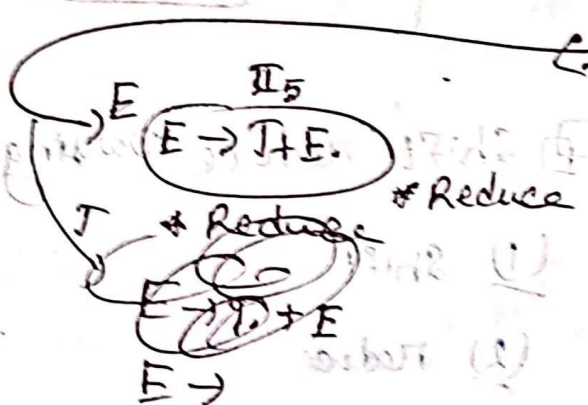 E
II5
E → T+E.
* Reduce
T
* Reduce
E → T. + E
E →